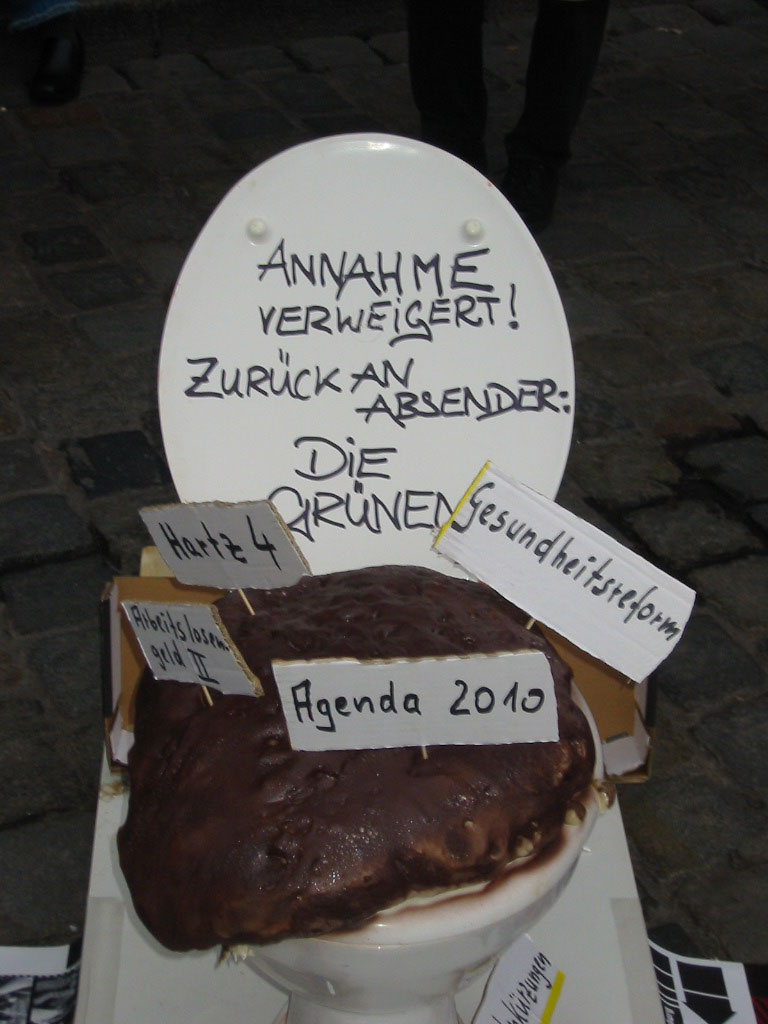 ANNAHME
VERWEIGERT!
ZURÜCK AN
ABSENDER:
DIE
GRÜNEN
Hartz 4
Gesundheitsreform
Arbeitslosen
geld II
Agenda 2010